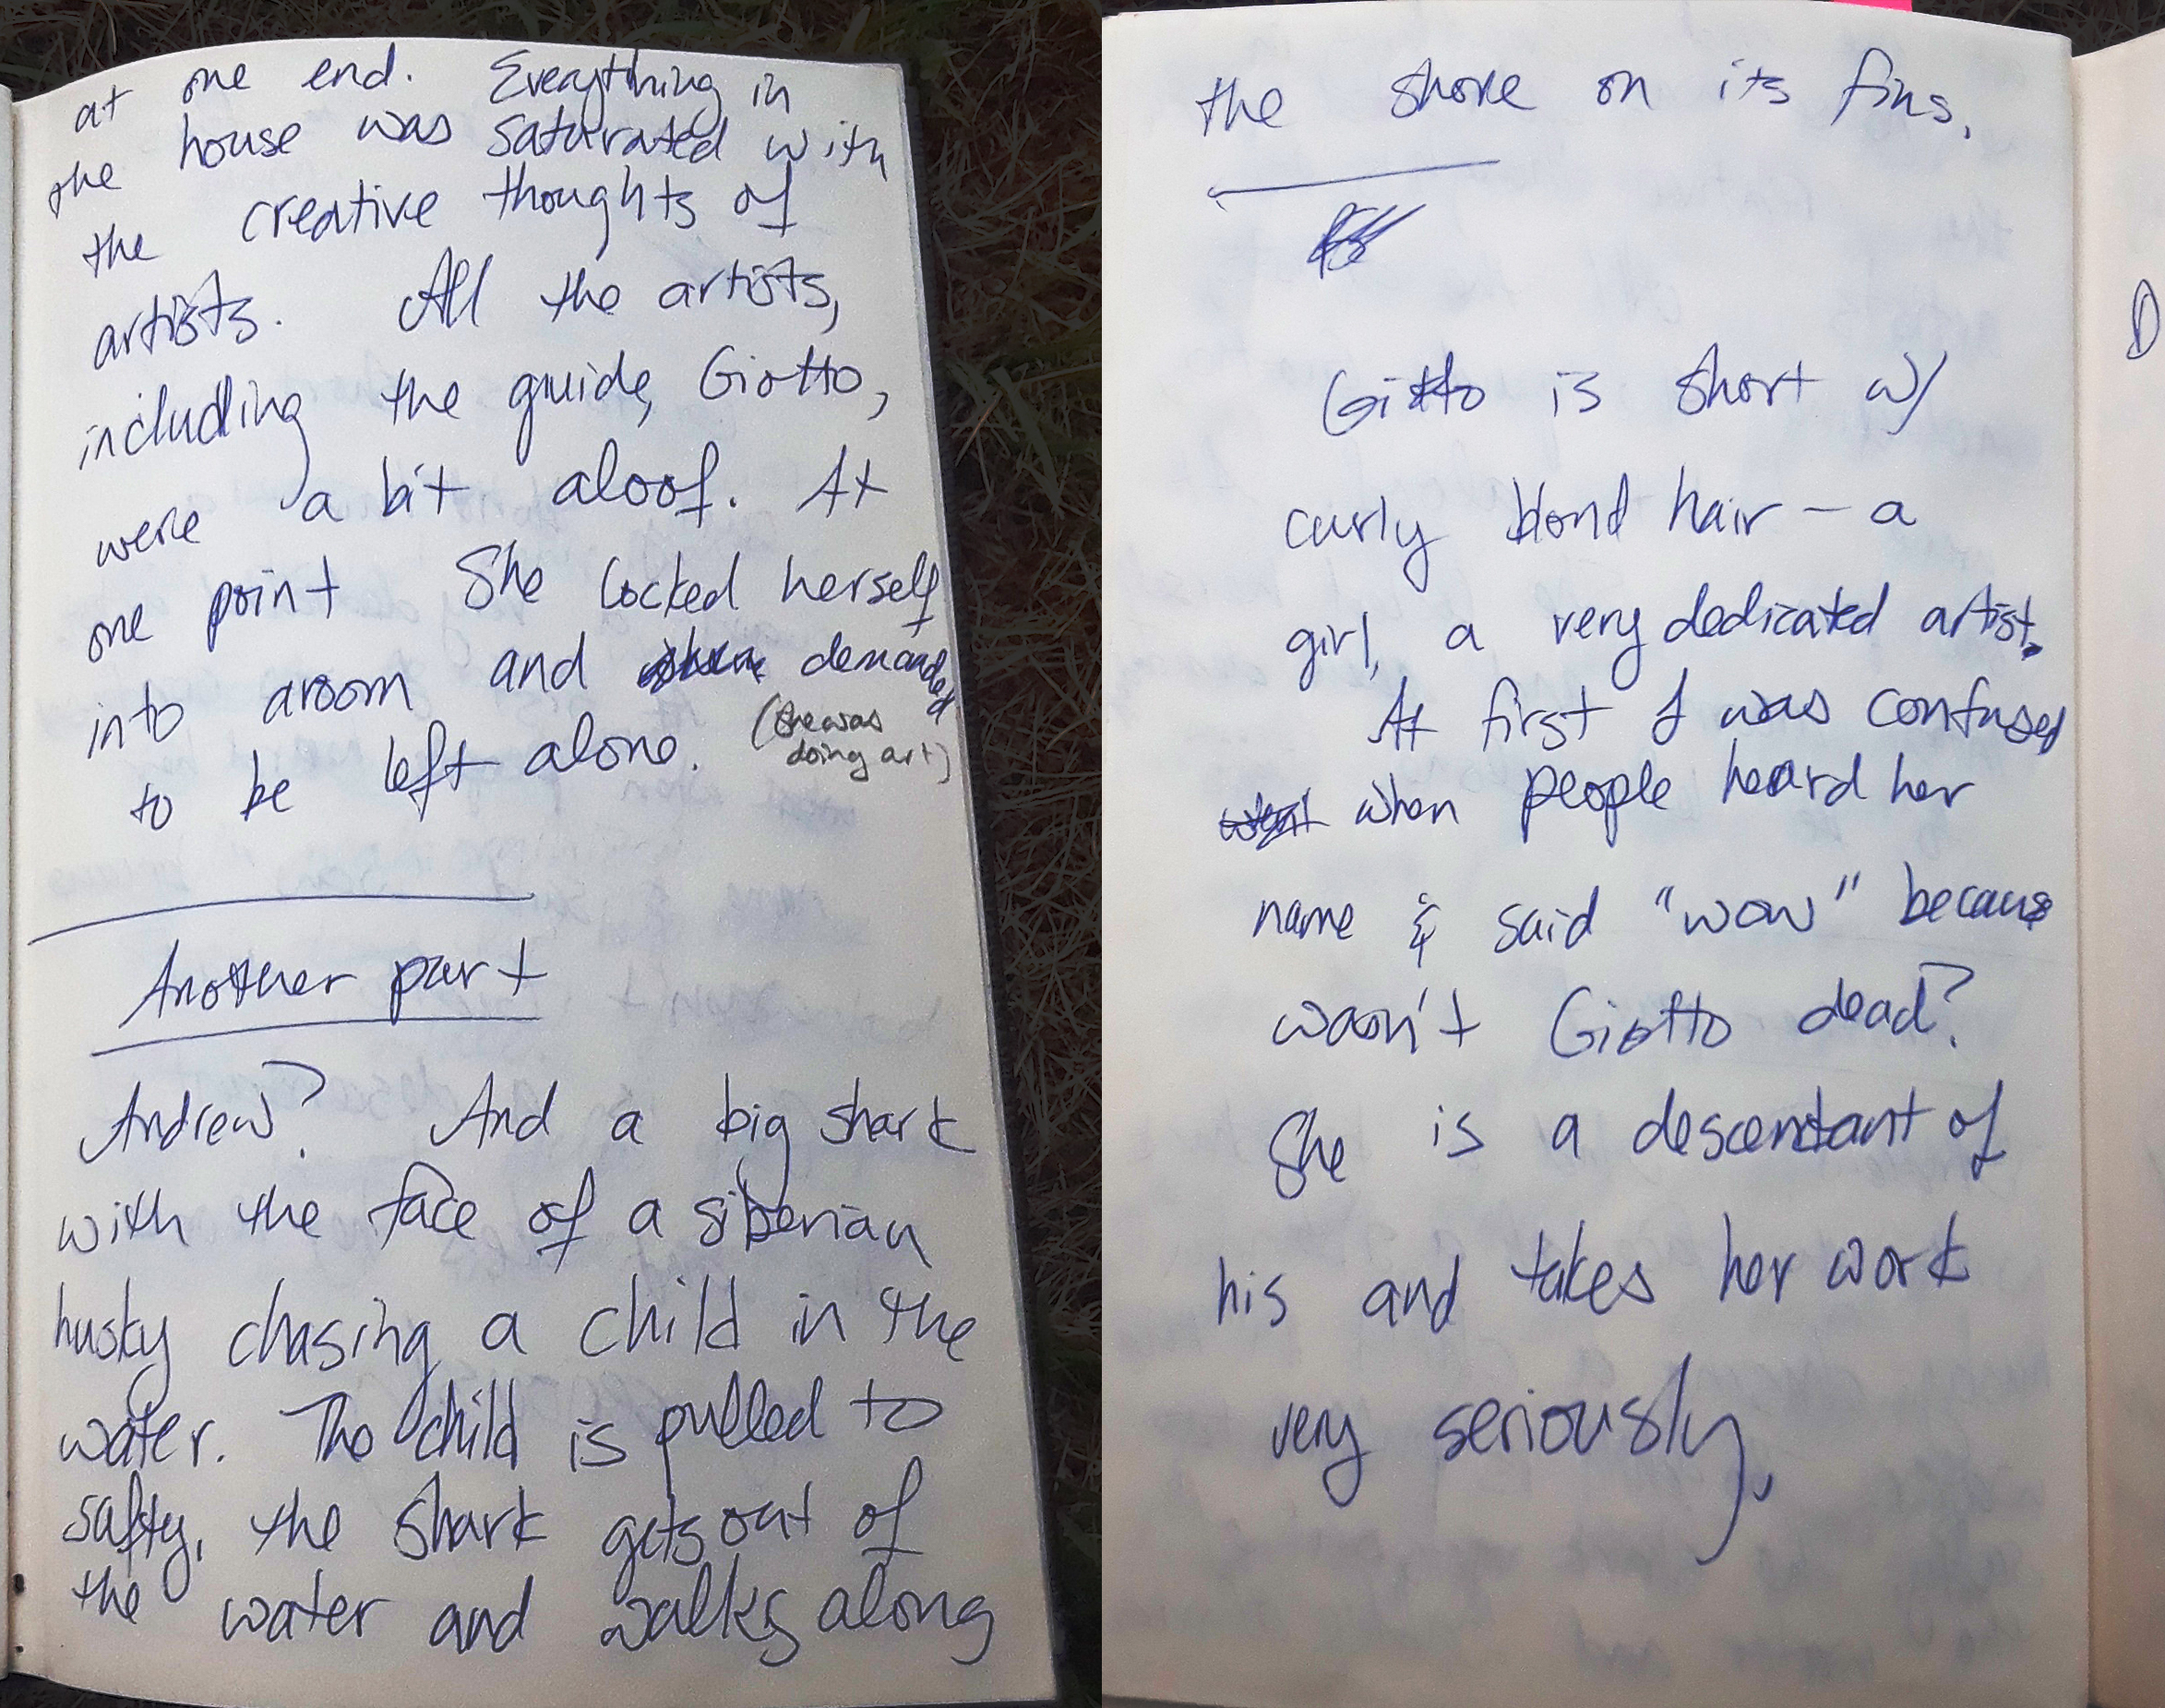 at one end. Everything in
the house was saturated with
the creative thoughts of
artists. All the artists,
including the guide, Giotto,
were a bit aloof. At
one point She locked herself
into a room and demanded
to be left alone. (she was
doing art)
Another part
Andrew? And a big shark
with the face of a siberian
husky chasing a child in the
water. The child is pulled to
safty, the shark gets out of
the water and walks along
the shore on its fins.
Giotto is short w/
curly blond hair - a
girl, a very dedicated artist.
At first I was confused
when people heard her
name & said "wow" because
wasn't Giotto dead?
She is a descendant of
his and takes her work
very seriously.
D